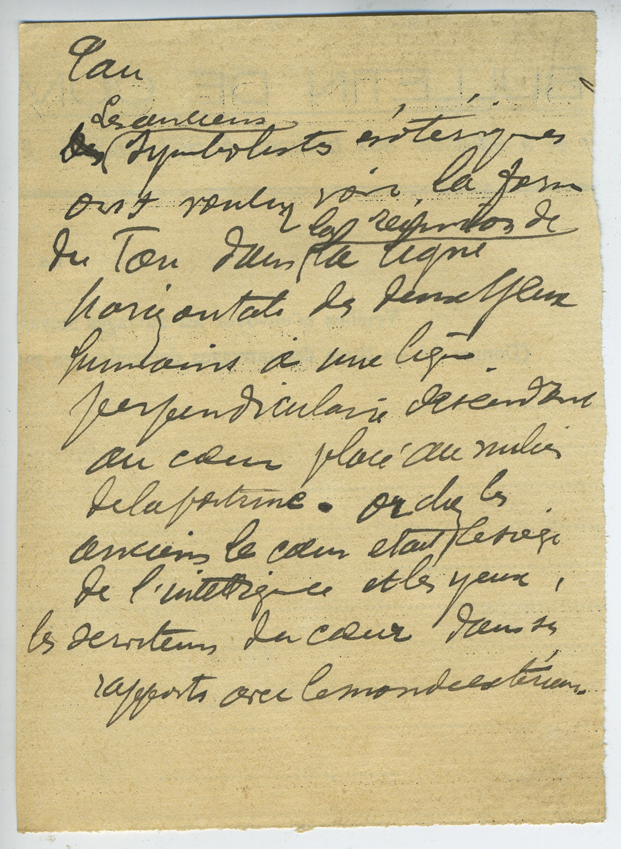 Tau
Les anciens
Des Symbolistes ésotériques
ont voulu voir la form
la réunion de
du Tau dans la ligne
horizontale des deux yeux
humains à une ligne
perpendiculaire descendant
au cœur placé au milieu
de la poitrine. or chez les
anciens le cœur etait le siège
de l'intelligence et les yeux,
les serviteurs du cœur dans ses
rapports avec le monde extérieur